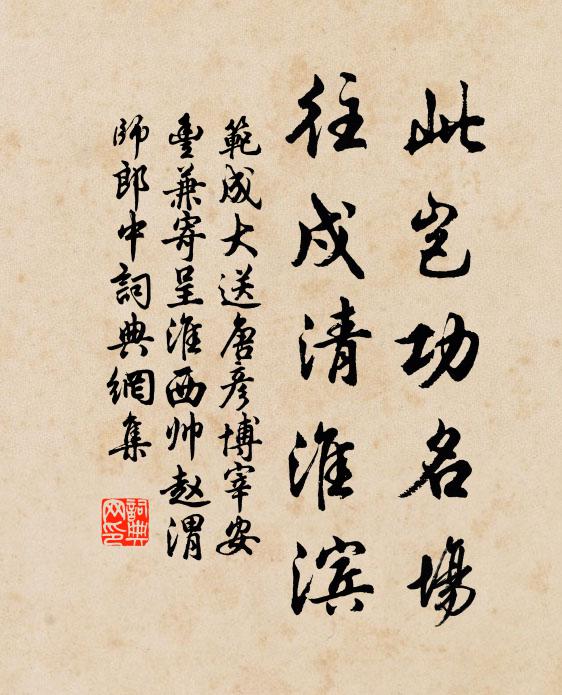 此岂功名場
往戍清淮滨
範成大送唐彦博宰安
豐兼寄呈淮西帅赵渭
師郎中詞典網集
詞典网印